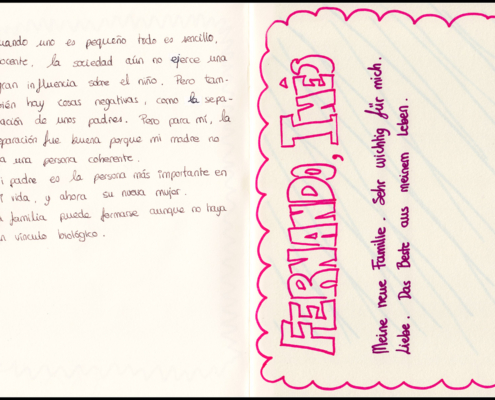 uando uno es pequeño todo es sencillo,
ocente. La sociedad aún no ejerce una
gran influencia sobre el niño. Pero tam-
bién hay cosas negativas, como la sepa-
ación de unos padres. Pero para mí, la
paración fue buena porque mi madre no
a una persona coherente.
i padre es la persona más importante en
i vida, y ahora su nueva mujer.
a familia puede formarse aunque no haya
n vínculo biológico.
FERNANDO, INÊS
Meine neue Familie. Sehr wichtig für mich.
Liebe. Das Beste aus meinem Leben.